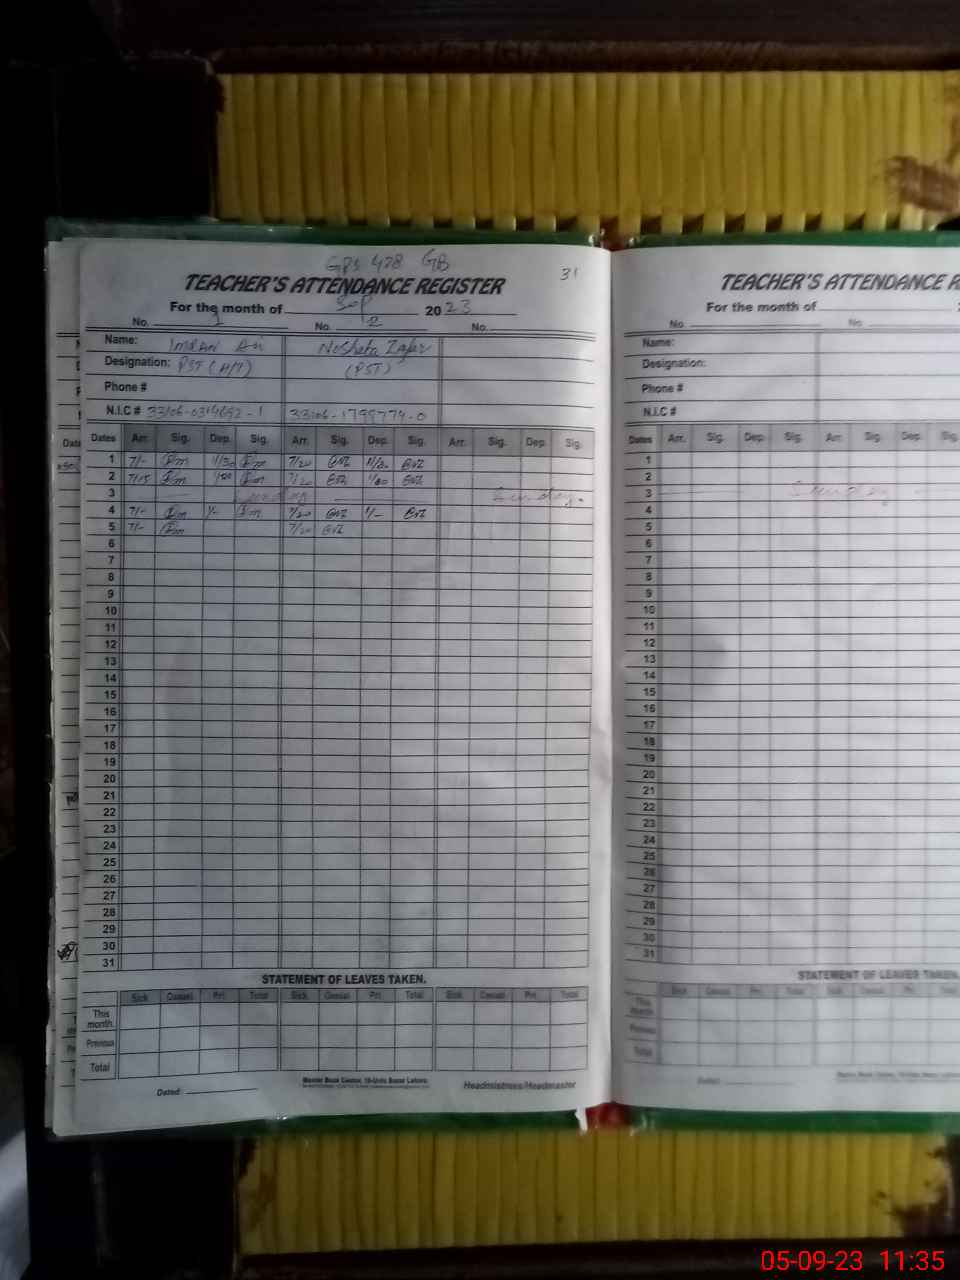 GPS 428 GB
31
TEACHER'S ATTENDANCE REGISTER
For the month of Sep 2023
No. 1 No. 2 No.
Name: Imran Ali Nosheta Zafar
Designation: PST (H/T) (PST)
Phone #
N.I.C # 33106-0314692-1 33106-1798779-0
Dates Arr. Sig. Dep. Sig. Arr. Sig. Dep. Sig. Arr. Sig. Dep. Sig.
1 7/- 1/30 7/20 11/30
2 7/15 7/20
3 Sunday Sunday.
4 7/- 1/- 7/20 1/-
5 7/- 7/20
6
7
8
9
10
11
12
13
14
15
16
17
18
19
20
21
22
23
24
25
26
27
28
29
30
31
STATEMENT OF LEAVES TAKEN.
Sick Casual Pri. Total Sick Casual Pri. Total Sick Casual Pri. Total
This month.
Previous
Total
Dated:
Headmistress/Headmaster
TEACHER'S ATTENDANCE R
For the month of
No. No.
Name:
Designation:
Phone #
N.I.C #
Dates Arr. Sig. Dep. Sig. Arr. Sig. Dep. Sig.
1
2
3 Sunday
4
5
6
7
8
9
10
11
12
13
14
15
16
17
18
19
20
21
22
23
24
25
26
27
28
29
30
31
STATEMENT OF LEAVES TAKEN.
Sick Casual Pri. Total Sick Casual Pri. Total
This month.
Previous
Total
Dated:
05-09-23 11:35